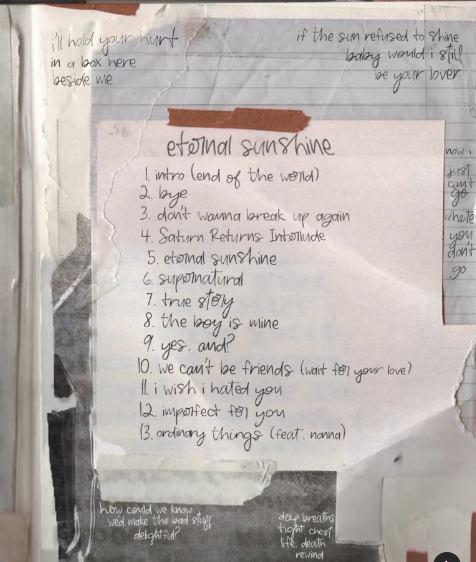 i'll hold your hurt
in a box here
beside me
if the sun refused to shine
baby would i still
be your lover
eternal sunshine
1. intro (end of the world)
2. bye
3. don't wanna break up again
4. Saturn Returns Interlude
5. eternal sunshine
6. supernatural
7. true story
8. the boy is mine
9. yes, and?
10. we can't be friends (wait for your love)
11. i wish i hated you
12. imperfect for you
13. ordinary things (feat. nonna)
now i
just
can't
go
where
you
don't
go
how could we know
we'd make the bad stuff
delightful?
deep breaths
tight chest
life, death
rewind